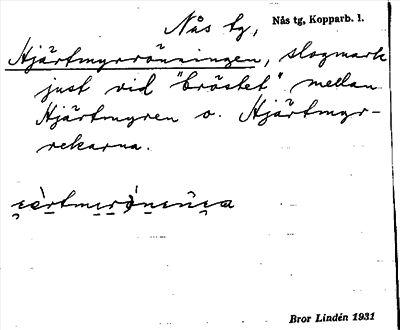 Nås tg,
Nås tg, Kopparb. l.
Hjärtmyrröningen, slogmark
just vid "bröstet" mellan
Hjärtmyren o. Hjärtmyr-
rekarna.
Bror Lindén 1931